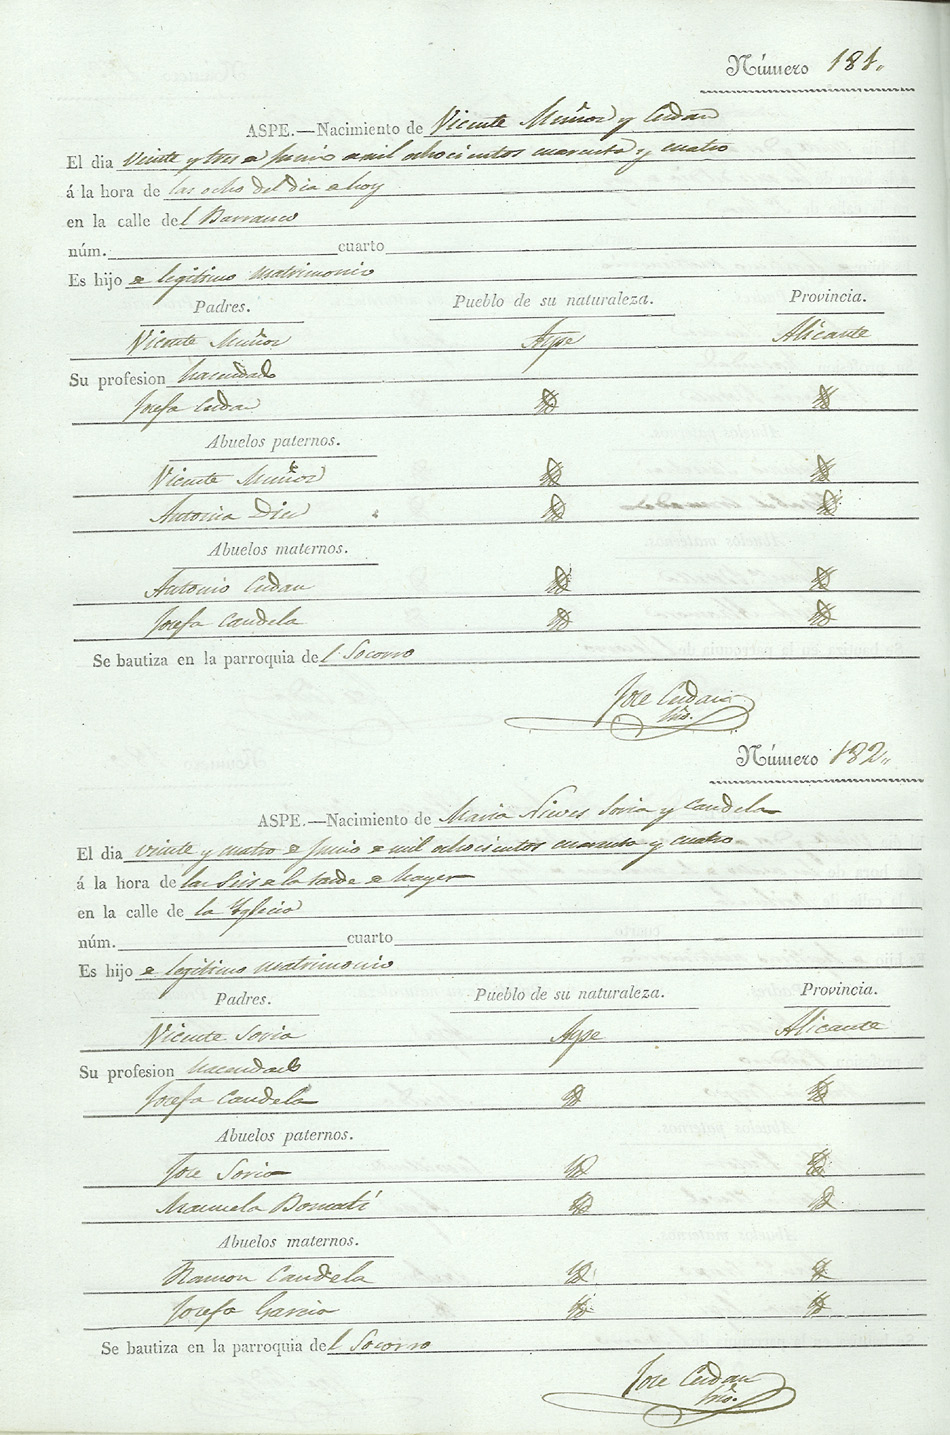 Número 181.
ASPE.—Nacimiento de Vicente Muñoz y Cerdan
El dia veinte y tres de Junio de mil ochocientos cuarenta y cuatro
á la hora de las ocho del dia de hoy
en la calle del Barranco
núm. cuarto
Es hijo de legitimo matrimonio
Padres. Pueblo de su naturaleza. Provincia.
Vicente Muñoz Aspe Alicante
Su profesion hacendado
Josefa Cerdan
Abuelos paternos.
Vicente Muñoz
Antonia
Abuelos maternos.
Antonio Cerdan
Josefa Candela
Se bautiza en la parroquia del Socorro
Jose Cerdan
Número 182.
ASPE.—Nacimiento de Maria Nieves Soria y Candela
El dia veinte y cuatro de Junio de mil ochocientos cuarenta y cuatro
á la hora de las seis de la tarde de hayer
en la calle de la Yglecia
núm. cuarto
Es hijo de legitimo matrimonio
Padres. Pueblo de su naturaleza. Provincia.
Vicente Soria Aspe Alicante
Su profesion hacendado
Josefa Candela
Abuelos paternos.
Jose Soria
Manuela Bomati
Abuelos maternos.
Ramon Candela
Josefa Garcia
Se bautiza en la parroquia del Socorro
Jose Cerdan